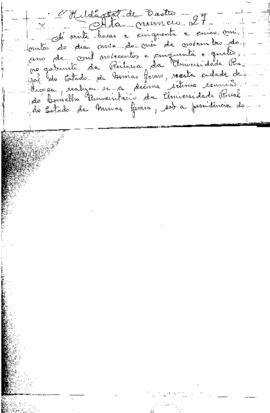 Hildegal de Castro
Ata numero 27
Às vinte horas e cinquenta e cinco mi
nutos do dia nove do mês de novembro do
ano de mil novecentos e cinquenta e quatro,
no gabinete da Reitoria da Universidade Ru
ral do Estado de Minas Gerais, nesta cidade de
Viçosa, realizou-se a décima sétima reunião
do Conselho Universitário da Universidade Rural
do Estado de Minas Gerais, sob a presidência do